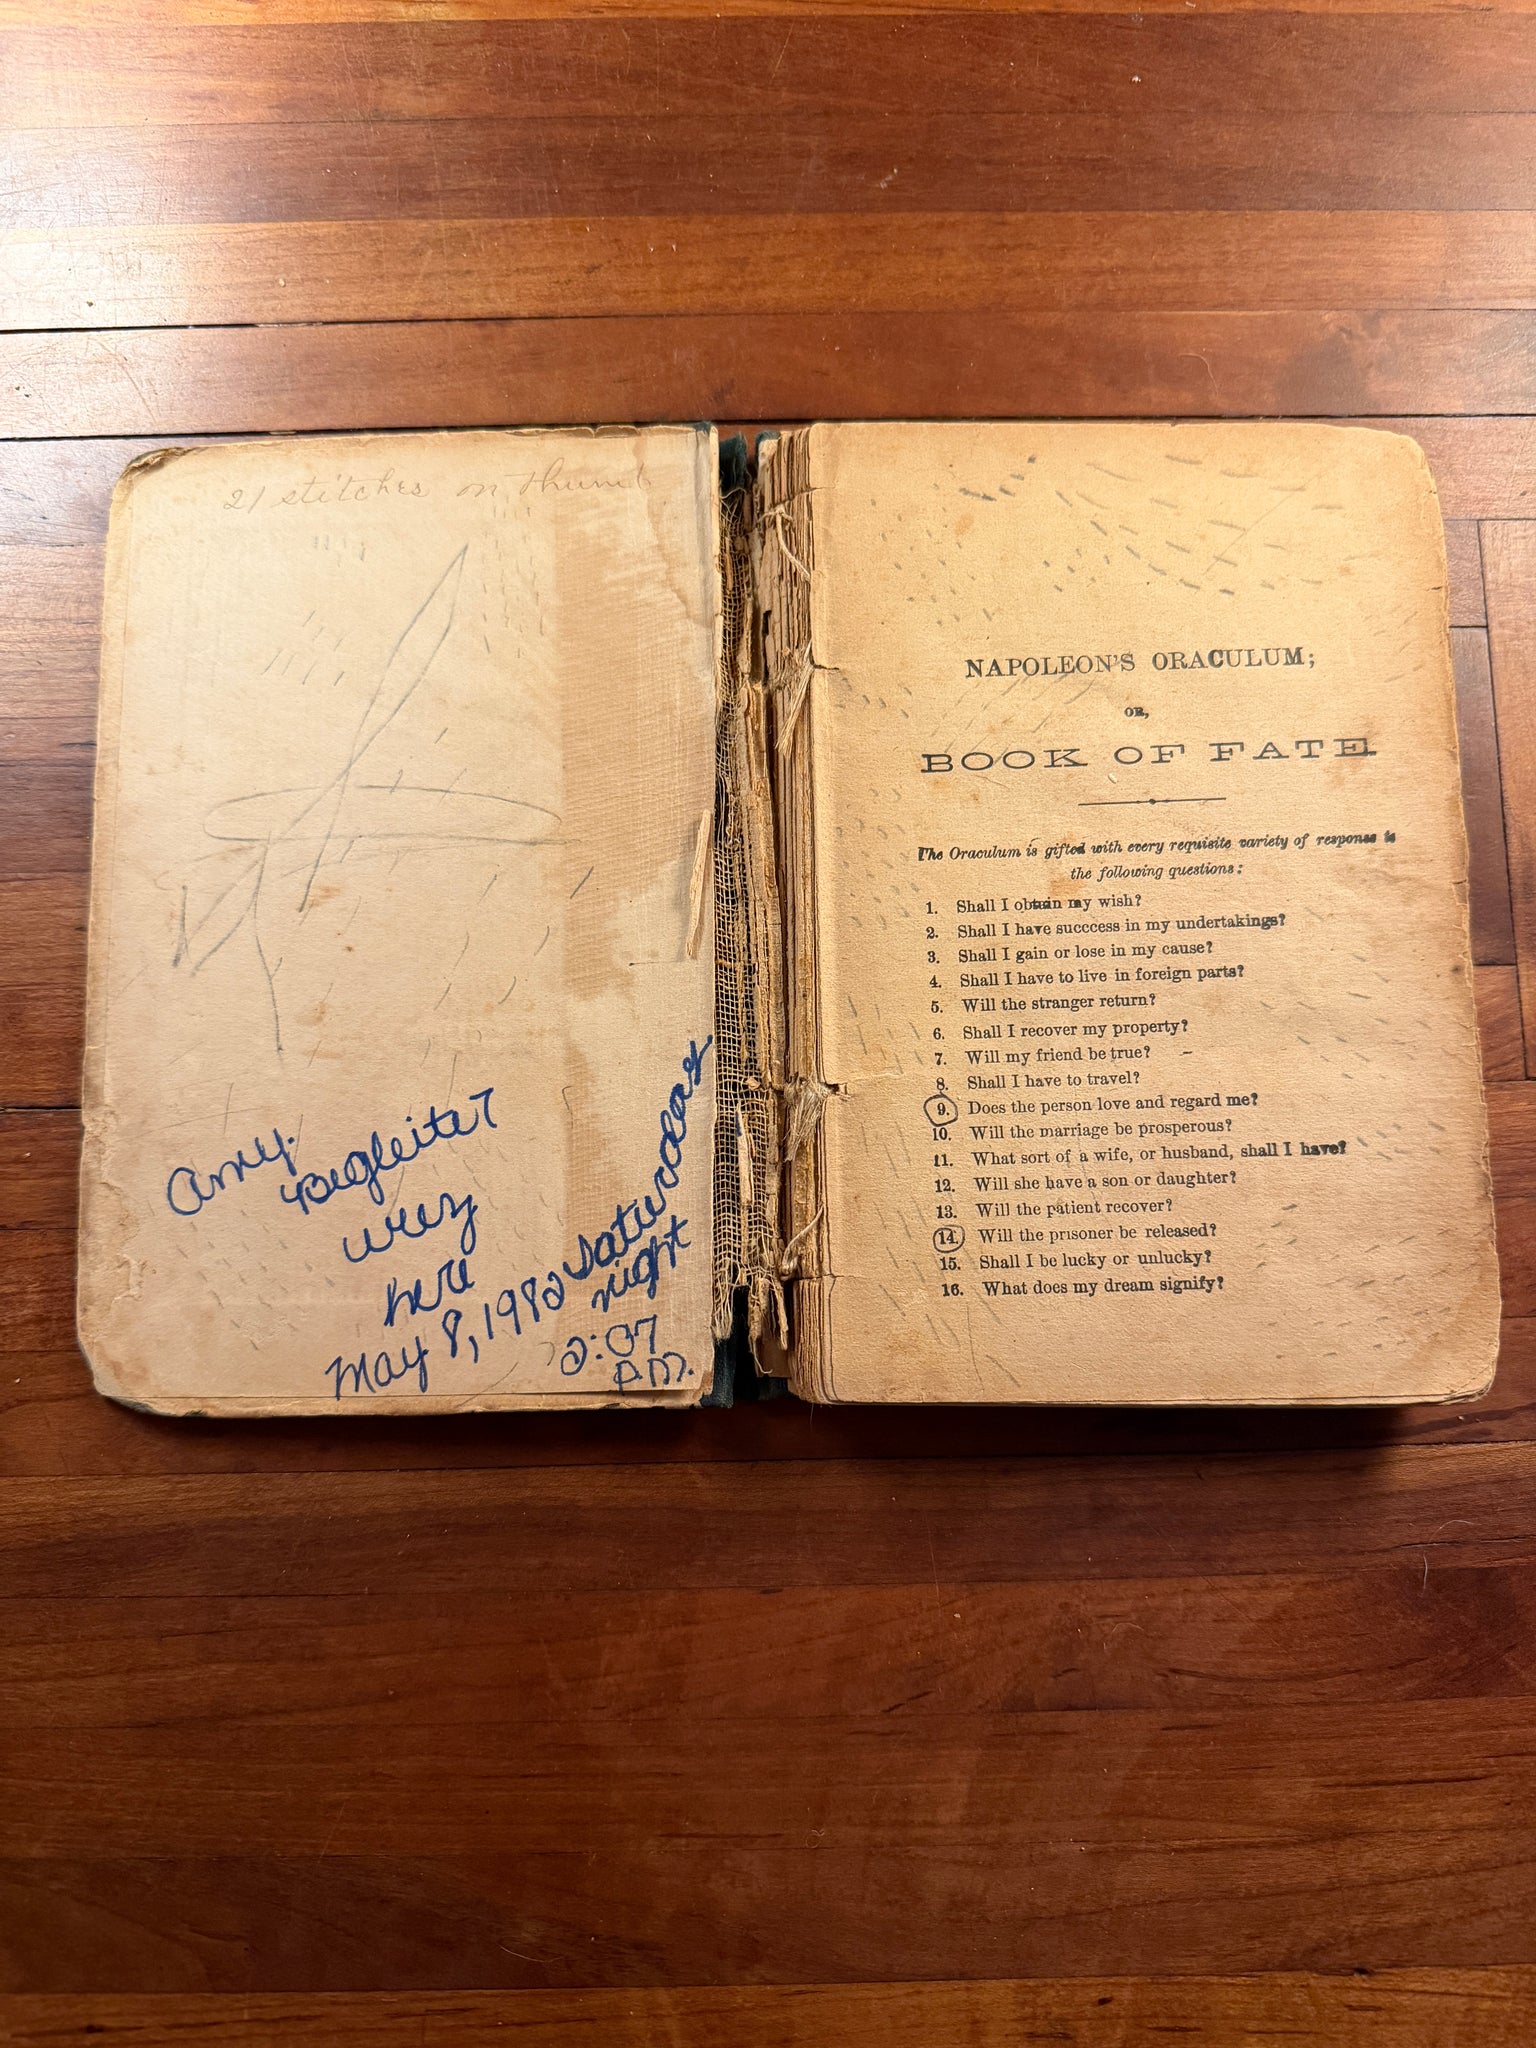 21 stitches on thumb
Amy
Begleiter
wuz
here
May 8, 1982 Saturday
night
2:07
P.M.
NAPOLEON'S ORACULUM;
OR,
BOOK OF FATE.
The Oraculum is gifted with every requisite variety of response to
the following questions:
1. Shall I obtain my wish?
2. Shall I have succcess in my undertakings?
3. Shall I gain or lose in my cause?
4. Shall I have to live in foreign parts?
5. Will the stranger return?
6. Shall I recover my property?
7. Will my friend be true?
8. Shall I have to travel?
9. Does the person love and regard me?
10. Will the marriage be prosperous?
11. What sort of a wife, or husband, shall I have?
12. Will she have a son or daughter?
13. Will the patient recover?
14. Will the prisoner be released?
15. Shall I be lucky or unlucky?
16. What does my dream signify?